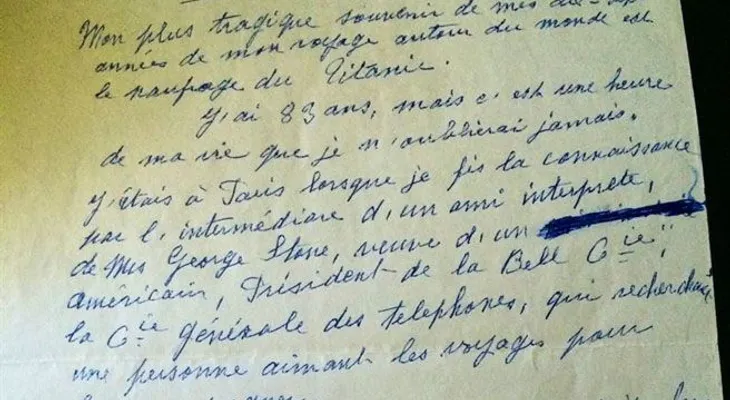 Mon plus tragique souvenir de mes dix-sept
années de mon voyage autour du monde est
le naufrage du Titanic.
J'ai 83 ans, mais c'est une heure
de ma vie que je n'oublierai jamais.
J'étais à Paris lorsque je fis la connaissance
par l'intermédiare d'un ami interprete,
de Mrs George Stone, veuve d'un
américain, Président de la Bell Cie,
la Cie générale des telephones, qui recherchait
une personne aimant les voyages pour